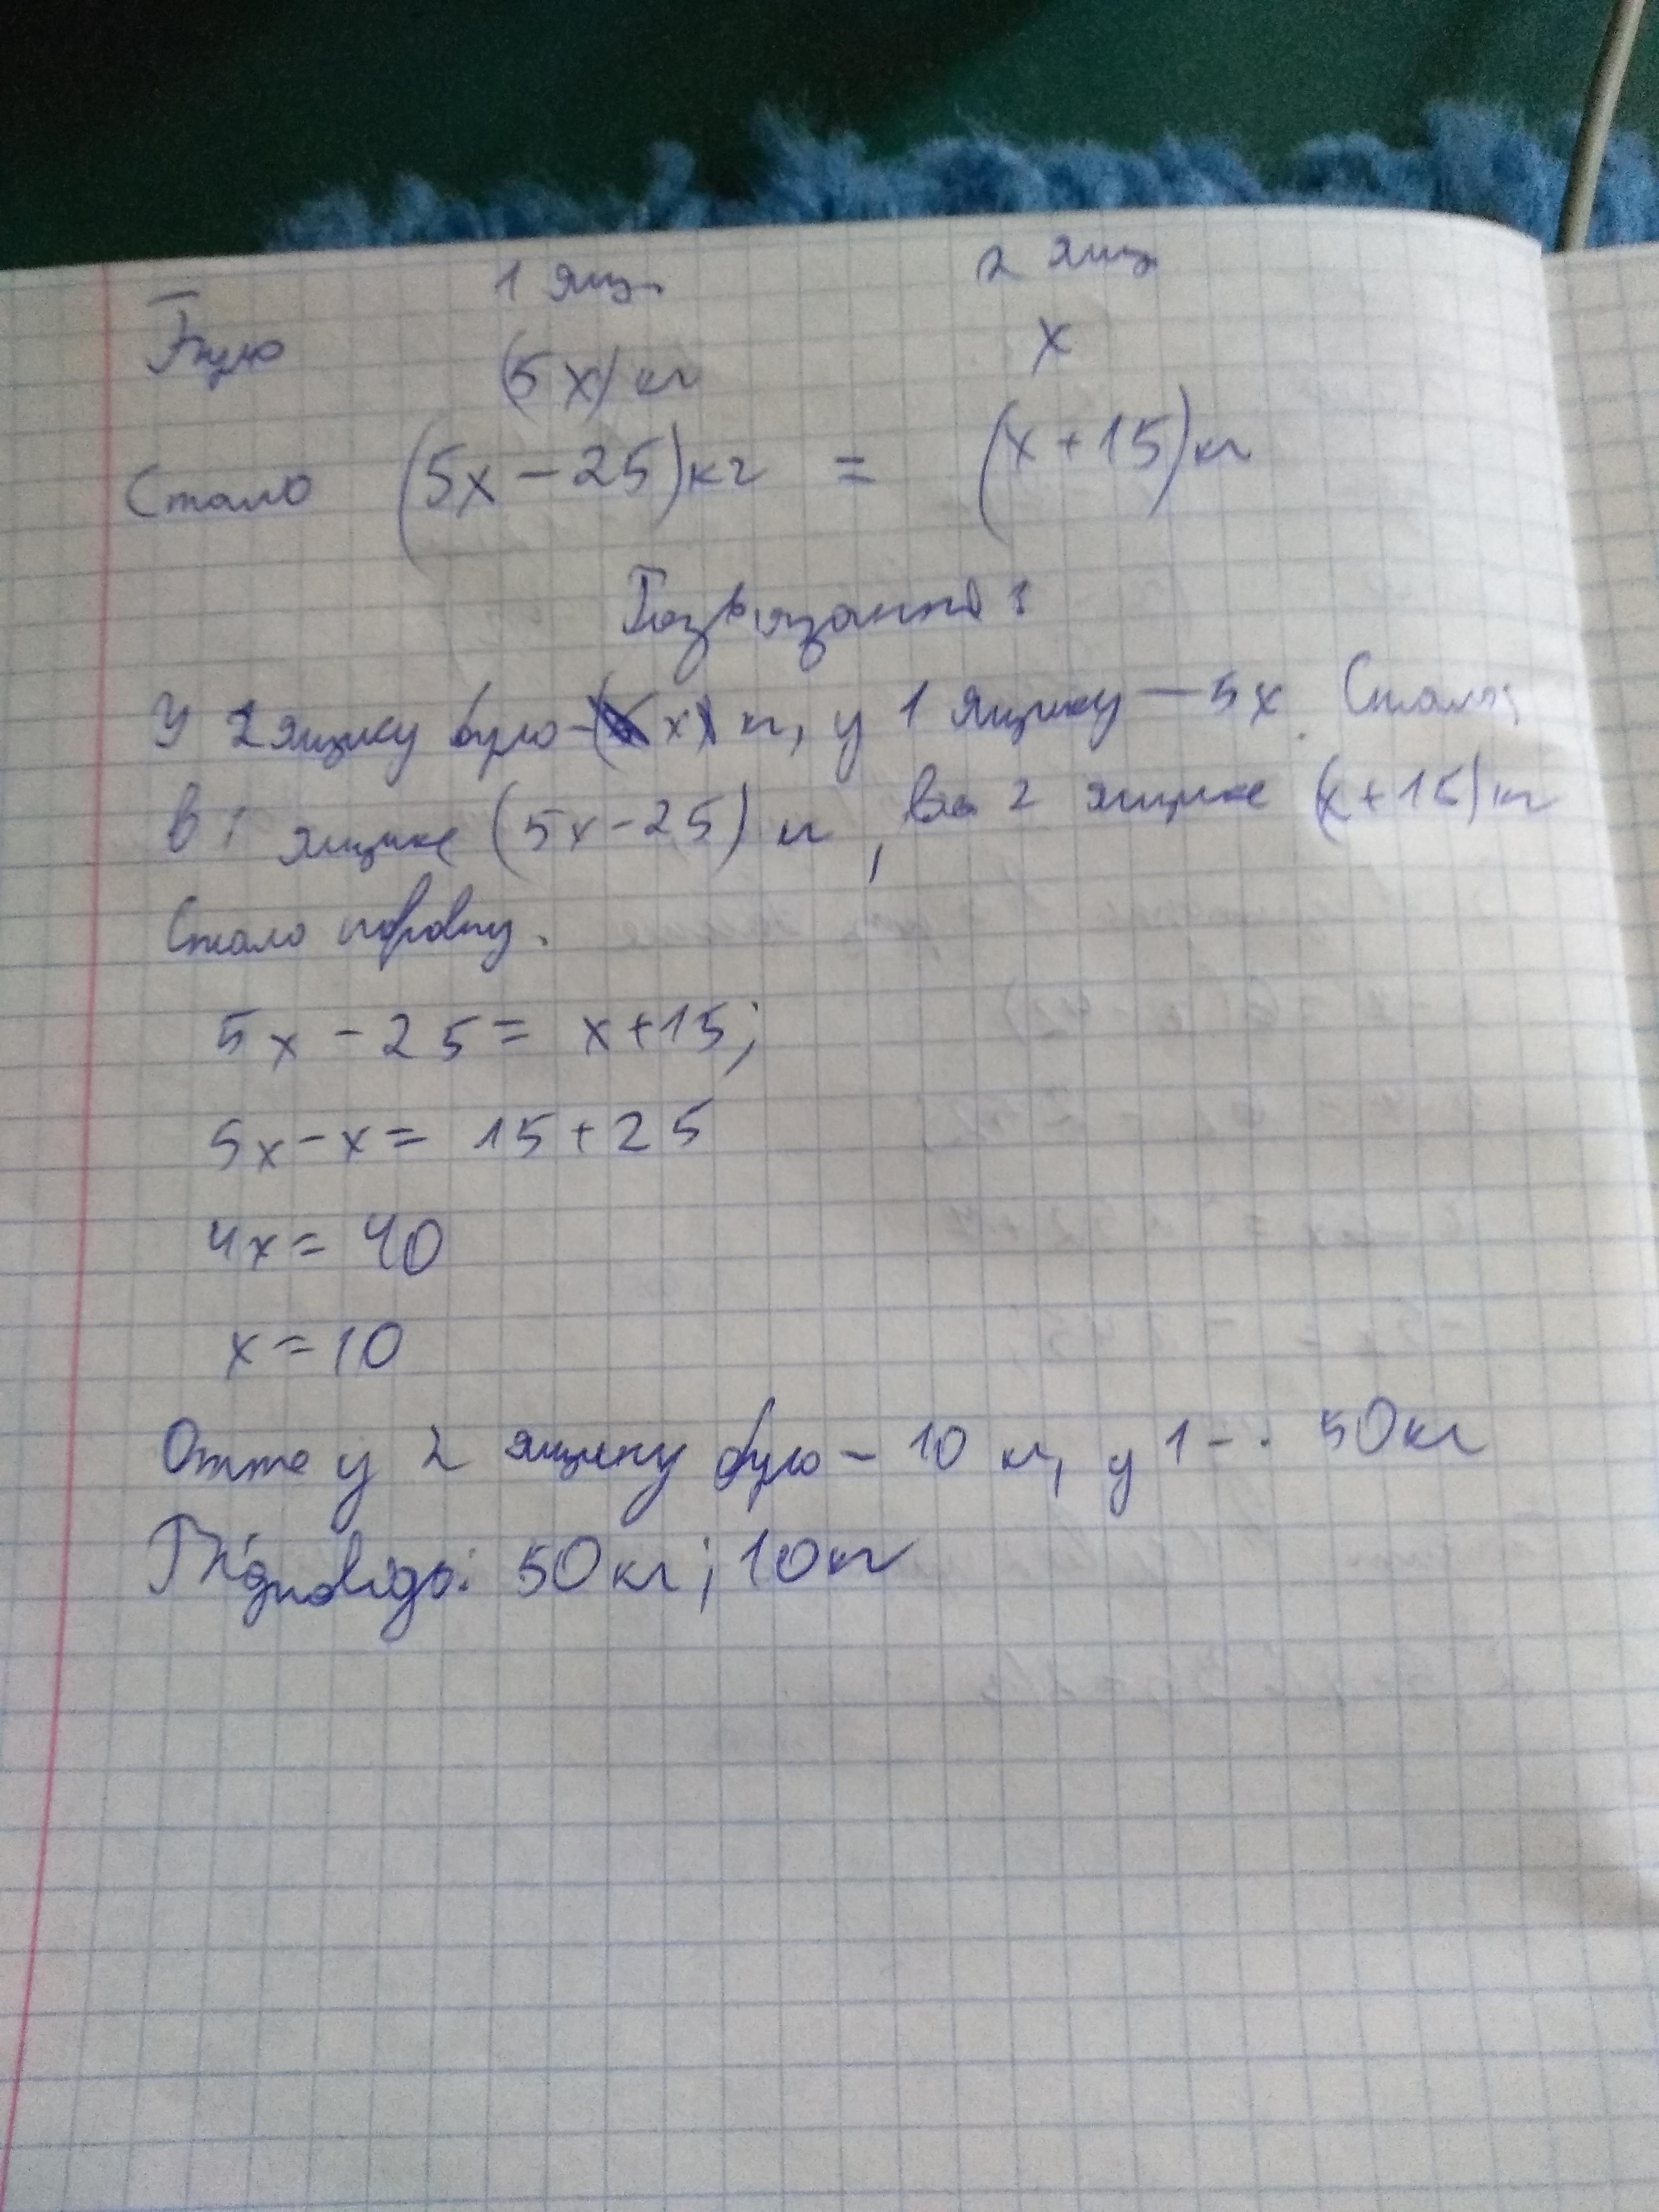 1 ящ. 2 ящ
Було (5x) кг x
Стало (5x - 25) кг = (x + 15) кг
Розв'язання:
У 2 ящику було - (x) кг, у 1 ящику - 5x. Стало:
в 1 ящике (5x - 25) кг, во 2 ящике (x + 15) кг
Стало поровну.
5x - 25 = x + 15;
5x - x = 15 + 25
4x = 40
x = 10
Отже у 2 ящику було - 10 кг, у 1 - . 50 кг
Відповідь: 50 кг; 10 кг